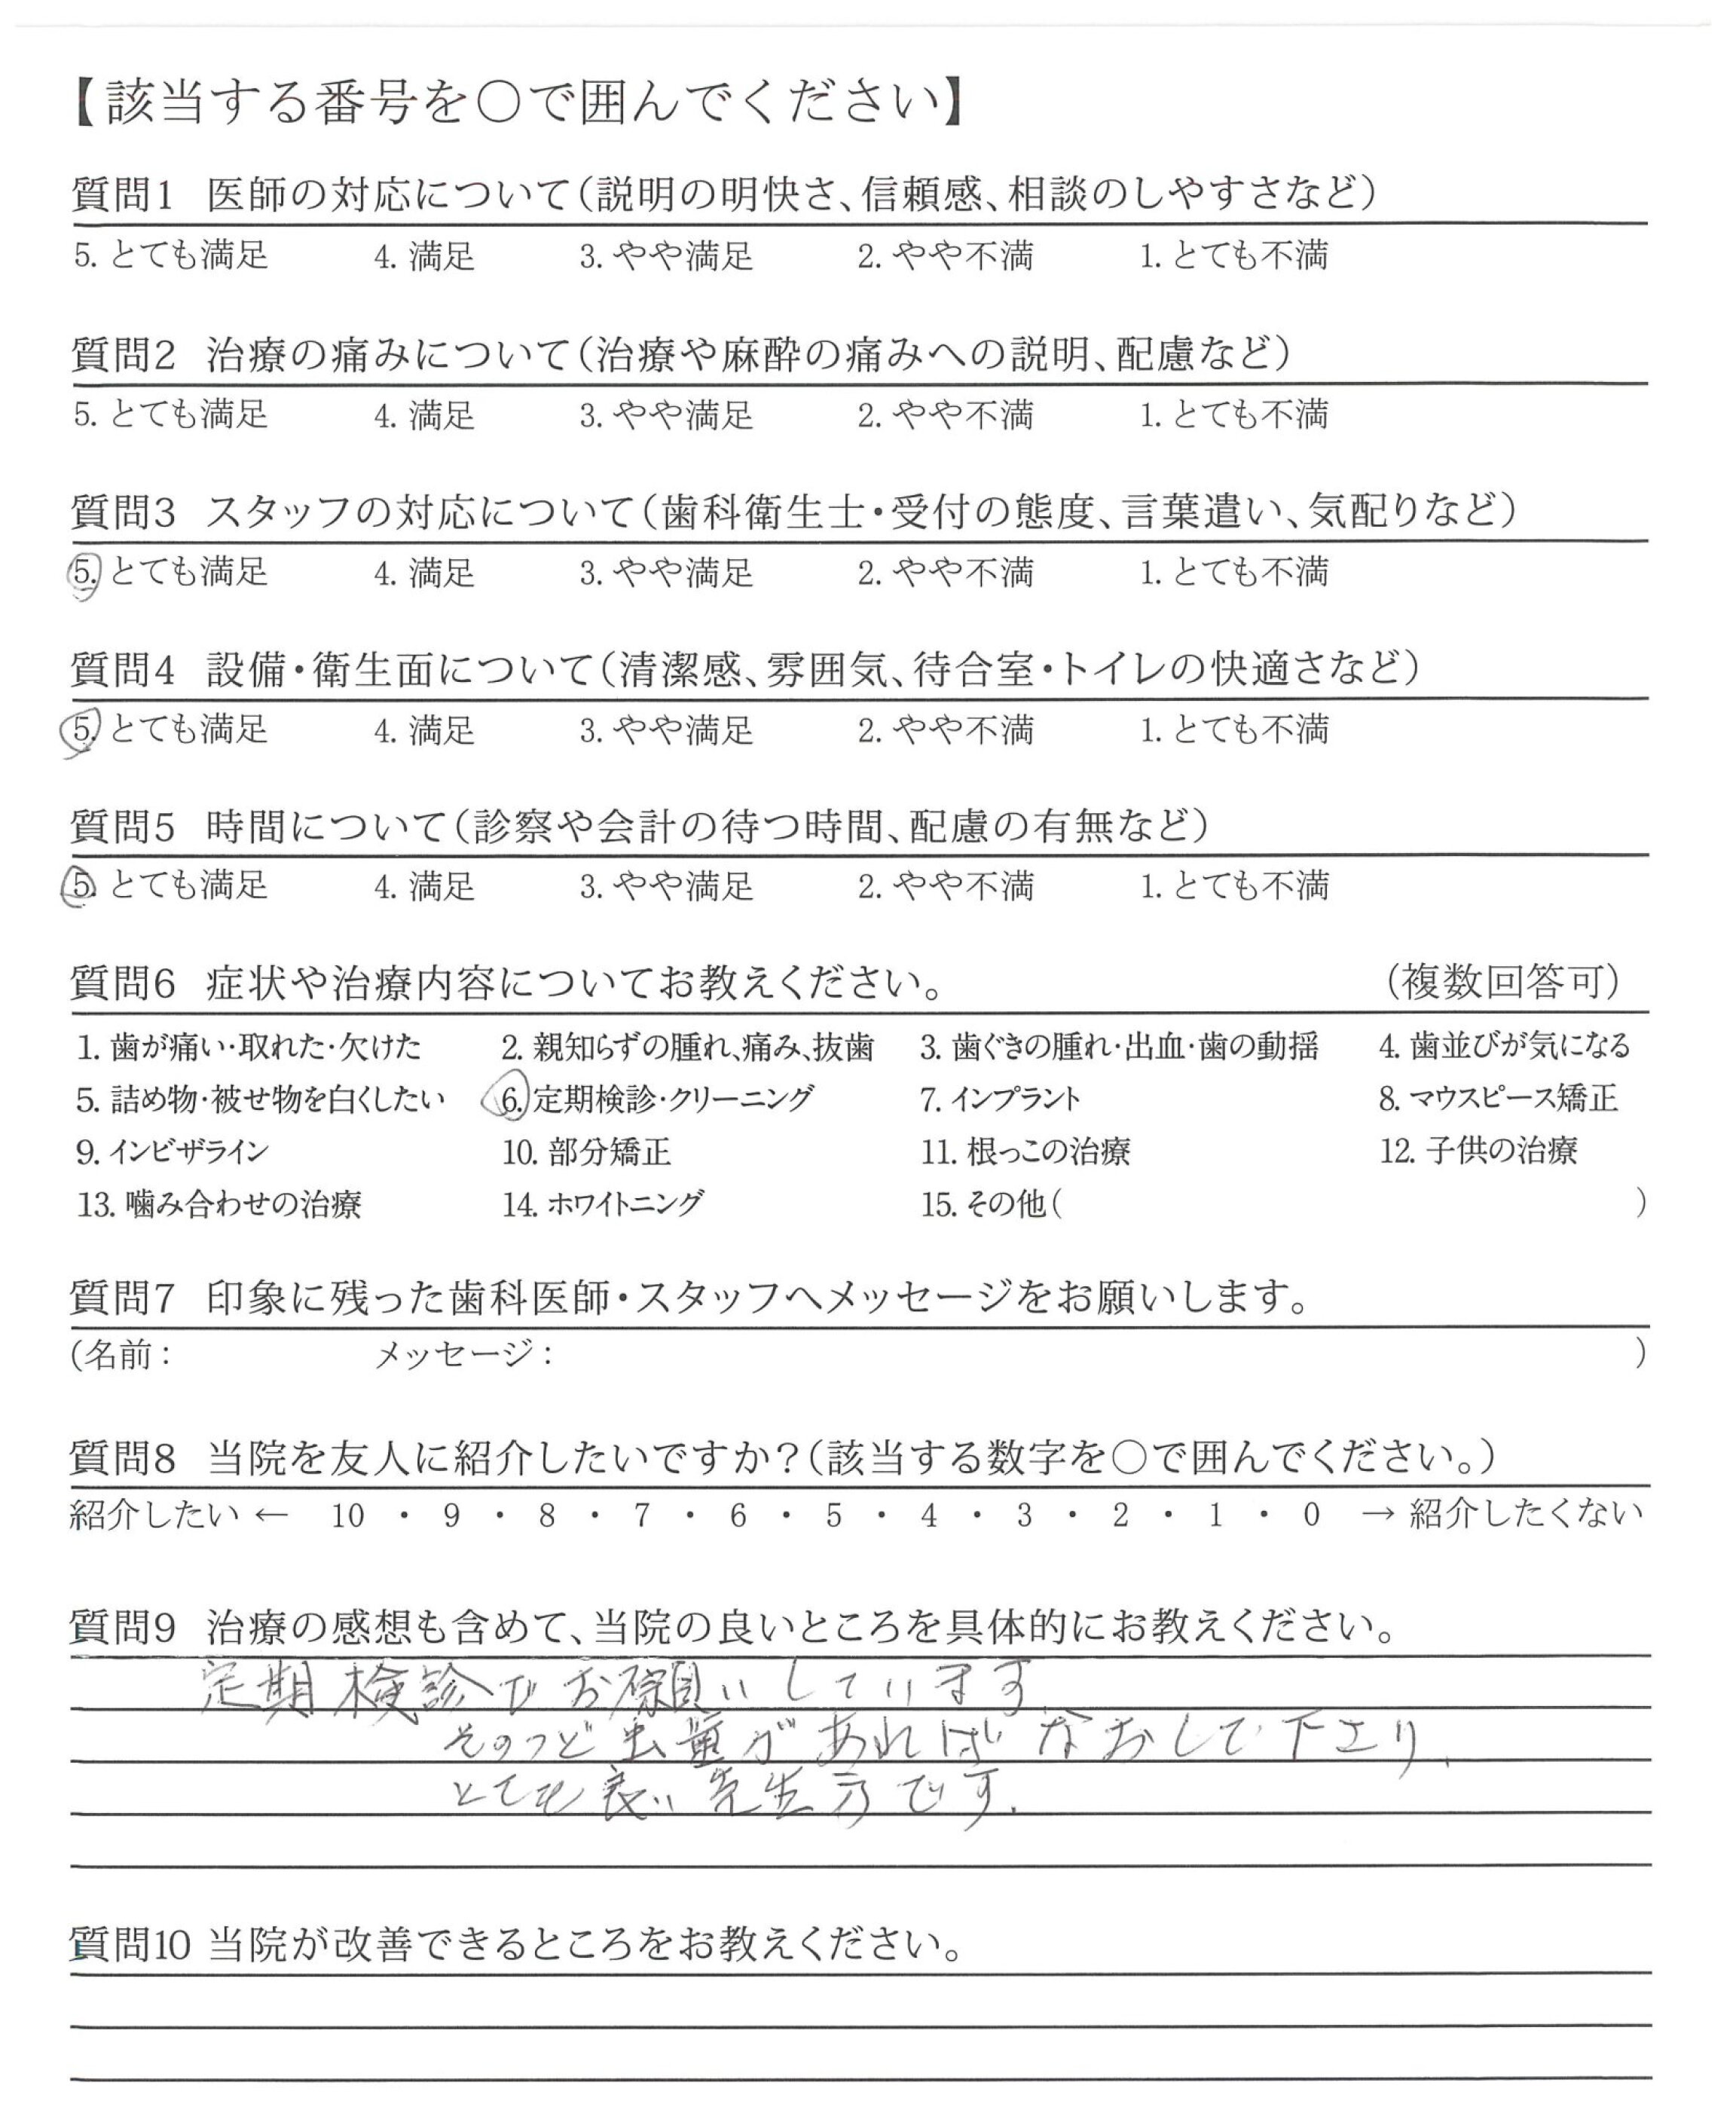 【該当する番号を○で囲んでください】
質問1 医師の対応について(説明の明快さ、信頼感、相談のしやすさなど)
5. とても満足 4. 満足 3. やや満足 2. やや不満 1. とても不満
質問2 治療の痛みについて(治療や麻酔の痛みへの説明、配慮など)
5. とても満足 4. 満足 3. やや満足 2. やや不満 1. とても不満
質問3 スタッフの対応について(歯科衛生士・受付の態度、言葉遣い、気配りなど)
5. とても満足 4. 満足 3. やや満足 2. やや不満 1. とても不満
質問4 設備・衛生面について(清潔感、雰囲気、待合室・トイレの快適さなど)
5. とても満足 4. 満足 3. やや満足 2. やや不満 1. とても不満
質問5 時間について(診察や会計の待つ時間、配慮の有無など)
5. とても満足 4. 満足 3. やや満足 2. やや不満 1. とても不満
質問6 症状や治療内容についてお教えください。 (複数回答可)
1. 歯が痛い・取れた・欠けた 2. 親知らずの腫れ、痛み、抜歯 3. 歯ぐきの腫れ・出血・歯の動揺 4. 歯並びが気になる
5. 詰め物・被せ物を白くしたい 6. 定期検診・クリーニング 7. インプラント 8. マウスピース矯正
9. インビザライン 10. 部分矯正 11. 根っこの治療 12. 子供の治療
13. 噛み合わせの治療 14. ホワイトニング 15. その他( )
質問7 印象に残った歯科医師・スタッフへメッセージをお願いします。
(名前: メッセージ: )
質問8 当院を友人に紹介したいですか?(該当する数字を○で囲んでください。)
紹介したい ← 10 ・ 9 ・ 8 ・ 7 ・ 6 ・ 5 ・ 4 ・ 3 ・ 2 ・ 1 ・ 0 → 紹介したくない
質問9 治療の感想も含めて、当院の良いところを具体的にお教えください。
定期検診でお願いしています
そのつど虫歯があればなおして下さり、
とても良い先生方です.
質問10 当院が改善できるところをお教えください。